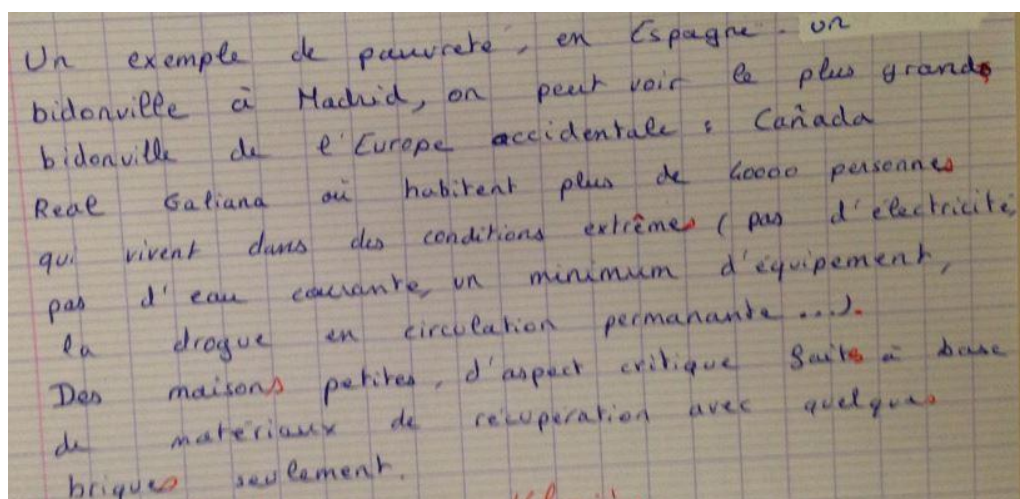 Un exemple de pauvreté, en Espagne. un
bidonville à Madrid, on peut voir le plus grands
bidonville de l'Europe occidentale : Cañada
Real Galiana où habitent plus de 40000 personnes
qui vivent dans des conditions extrêmes (pas d'électricité,
pas d'eau courante, un minimum d'équipement,
la drogue en circulation permanante ...).
Des maisons petites, d'aspect critique faites à base
de matériaux de récupération avec quelques
briques seulement.